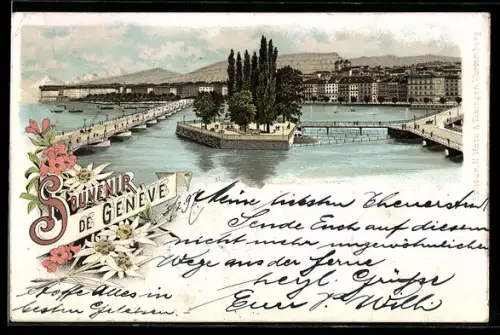 SOUVENIR
DE GENÈVE
Meine liebsten Theuersten
Sende Euch auf diesem
nicht mehr ungewöhnlichen
Wege aus der Ferne
herzl. Grüsse
Euer Willi
Hoffe Alles in
bestem